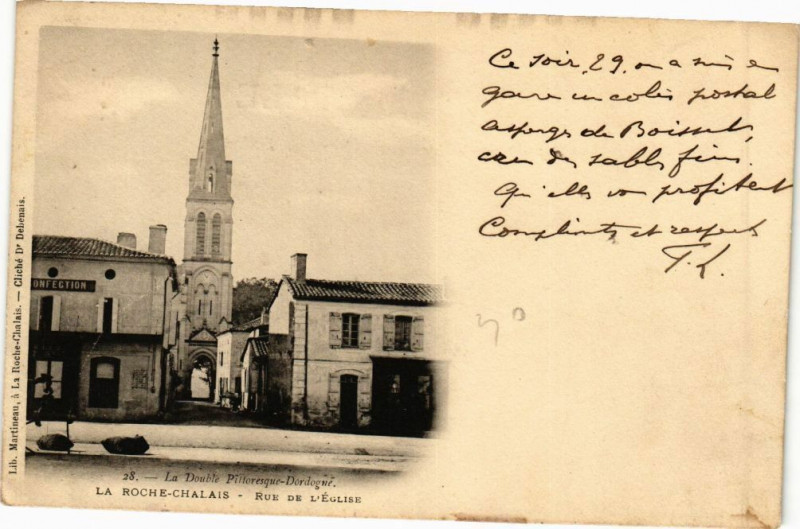 Ce soir, 29, on a mis en
gare un colis postal
asperges de Boisset,
cru des sables fins.
Qu'elles vous profitent
Compliments et respects
T. K.
ONFECTION
Lib. Martineau, à La Roche-Chalais. — Cliché Dr Debenais.
28. — La Double Pittoresque-Dordogne.
LA ROCHE-CHALAIS - RUE DE L'ÉGLISE